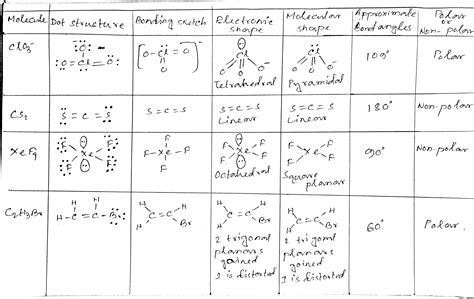 Molecule Dot structure Bonding sketch Electronic shape Molecular shape Approximate Bond angles Polar or Non-polar
ClO3- :O: :O=Cl=O: [O-Cl=O]- O Cl O O Tetrahedral Cl O O O Pyramidal 109° Polar
CS2 S=C=S S=C=S S=C=S Linear S=C=S Linear 180° Non-polar
XeF4 F F Xe F F F F-Xe-F F F F Xe F F Octahedral F F Xe F F Square planar 90° Non-polar
C2H3Br H H H-C=C-Br: H H C=C H Br H H C=C H Br 2 trigonal planars joined 1 is distorted H H C=C H Br 2 trigonal planars joined 1 is distorted 60° Polar.